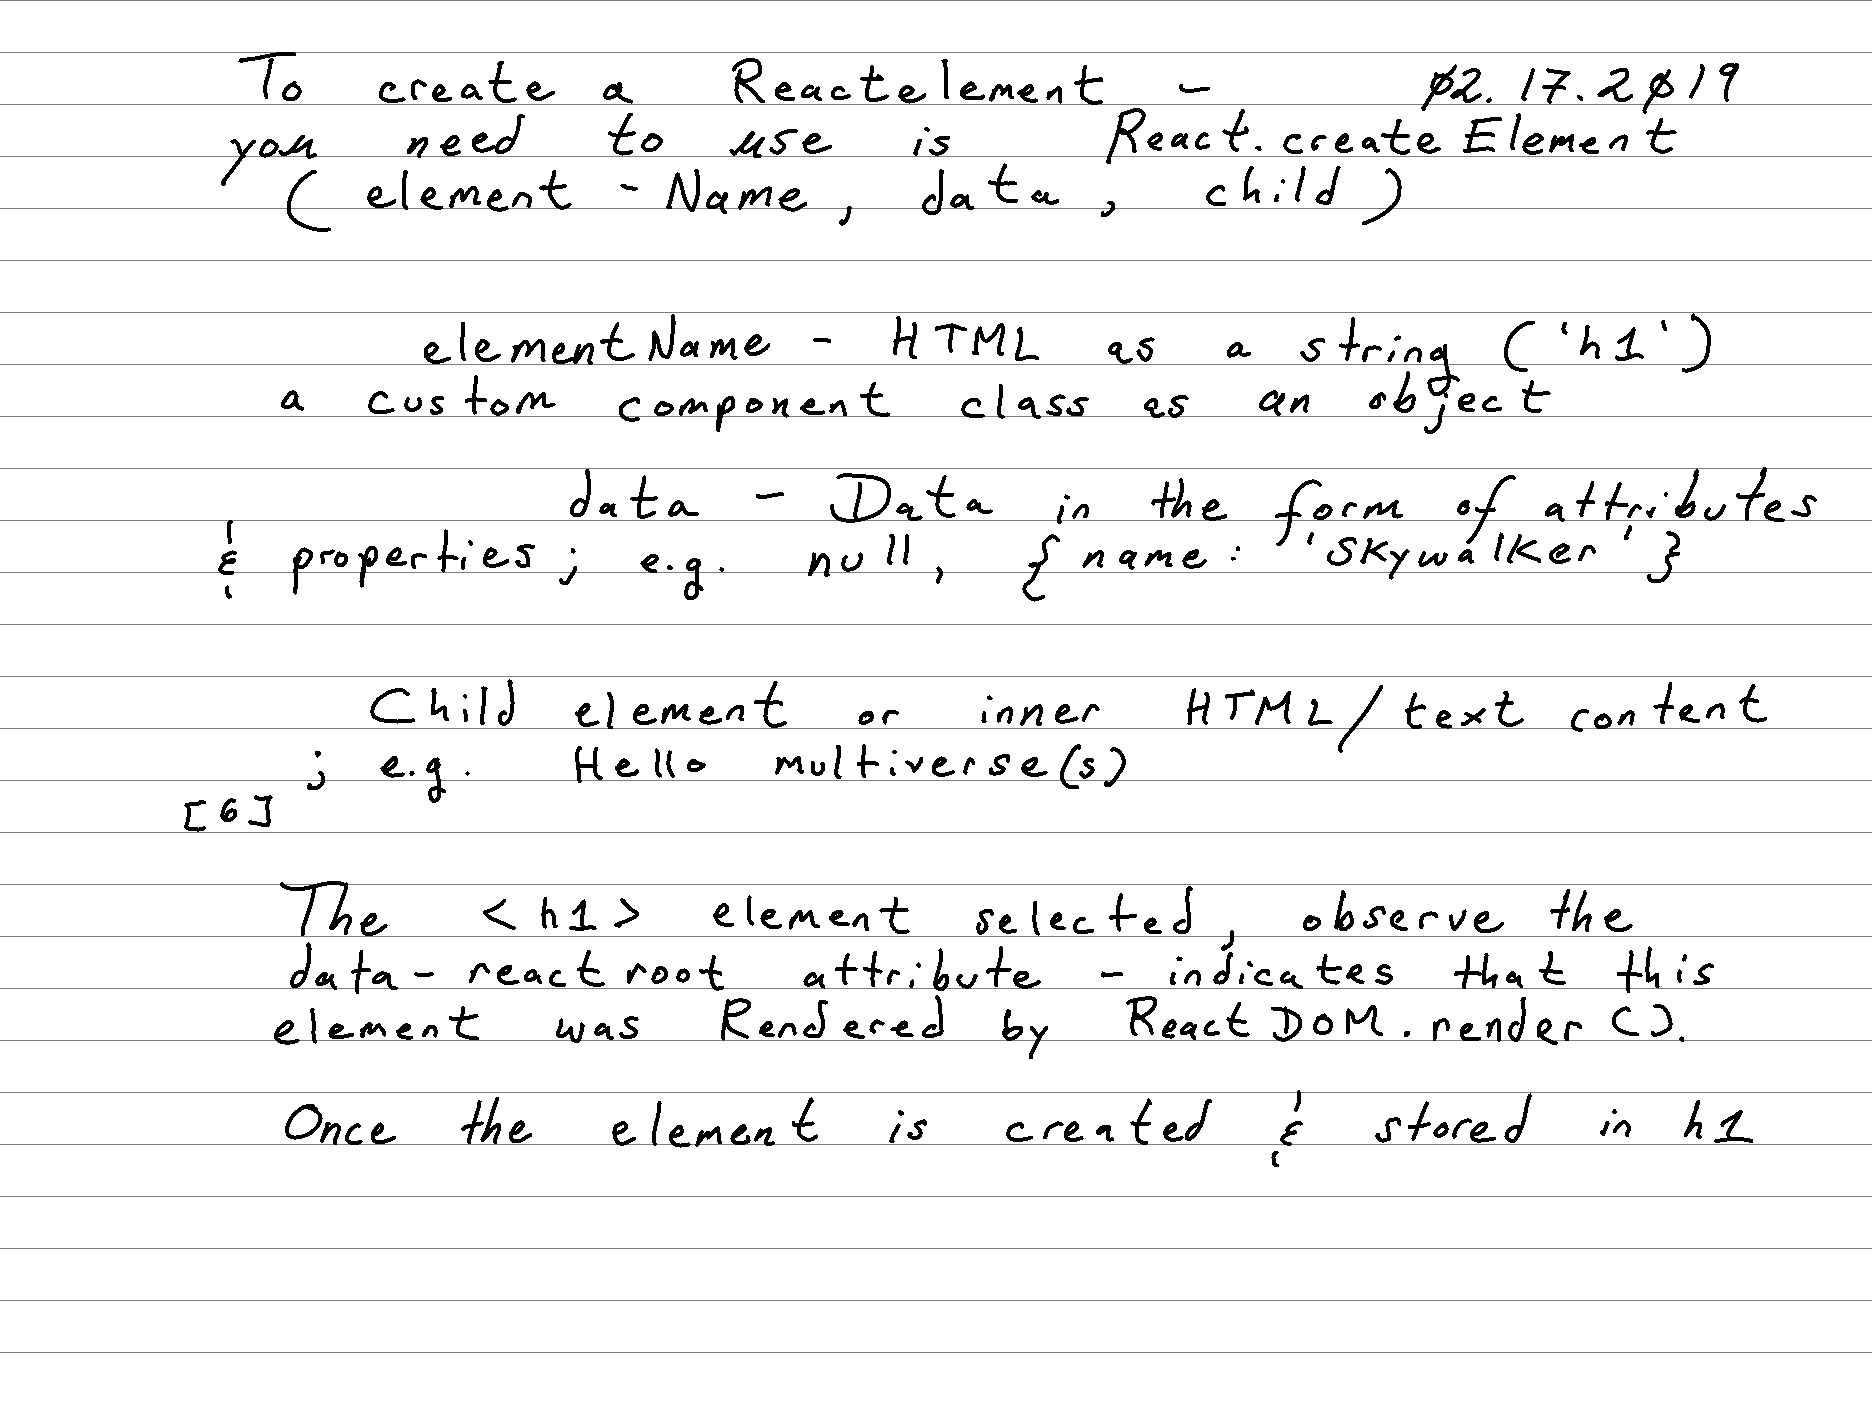 To create a Reactelement - 02.17.2019
you need to use is React.createElement
( element - Name, data, child )
elementName - HTML as a string ('h1')
a custom component class as an object
data - Data in the form of attributes
& properties; e.g. null, { name: 'Skywalker' }
Child element or inner HTML/text content
; e.g. Hello multiverse(s)
[6]
The <h1> element selected, observe the
data-reactroot attribute - indicates that this
element was Rendered by ReactDOM.render().
Once the element is created & stored in h1